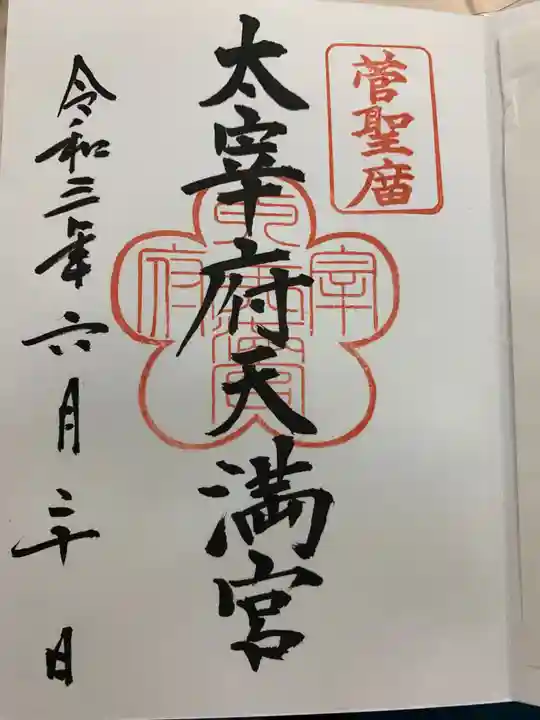 菅聖庿
太宰府天満宮
令和三年六月二十日